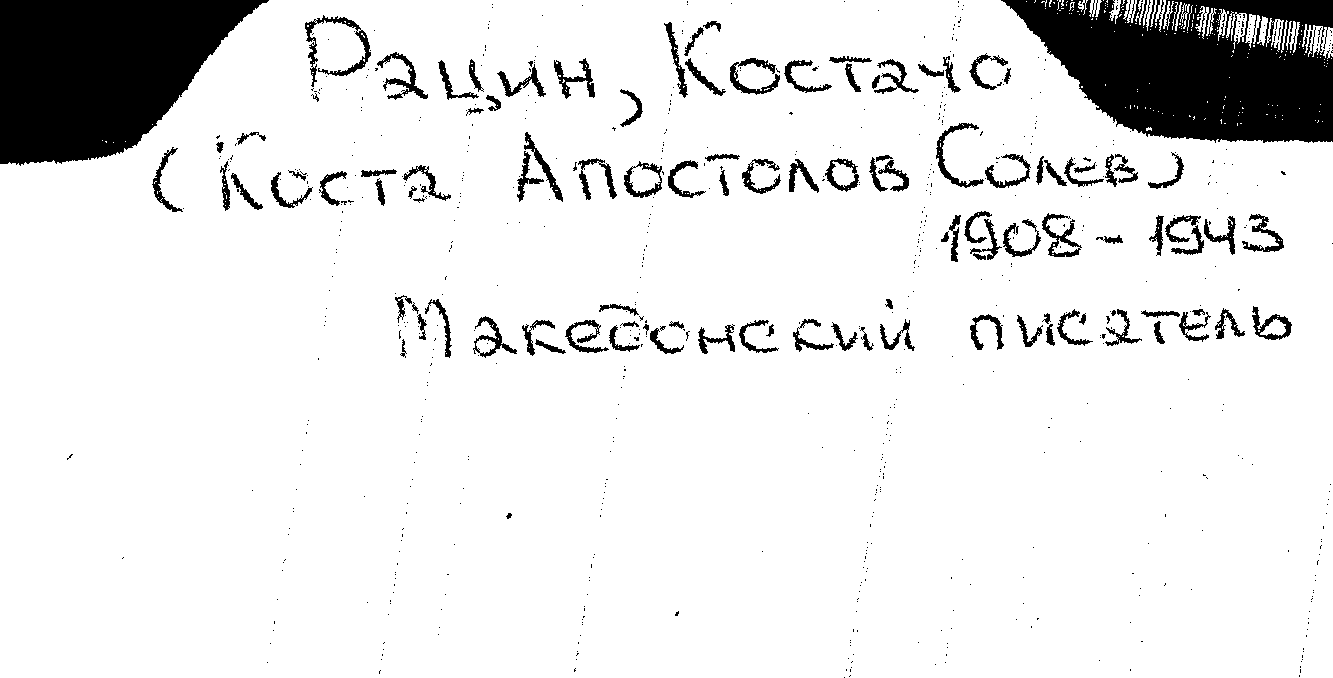 Рацин, Костачо
(Коста Апостолов Солев)
1908 - 1943
Македонский писатель